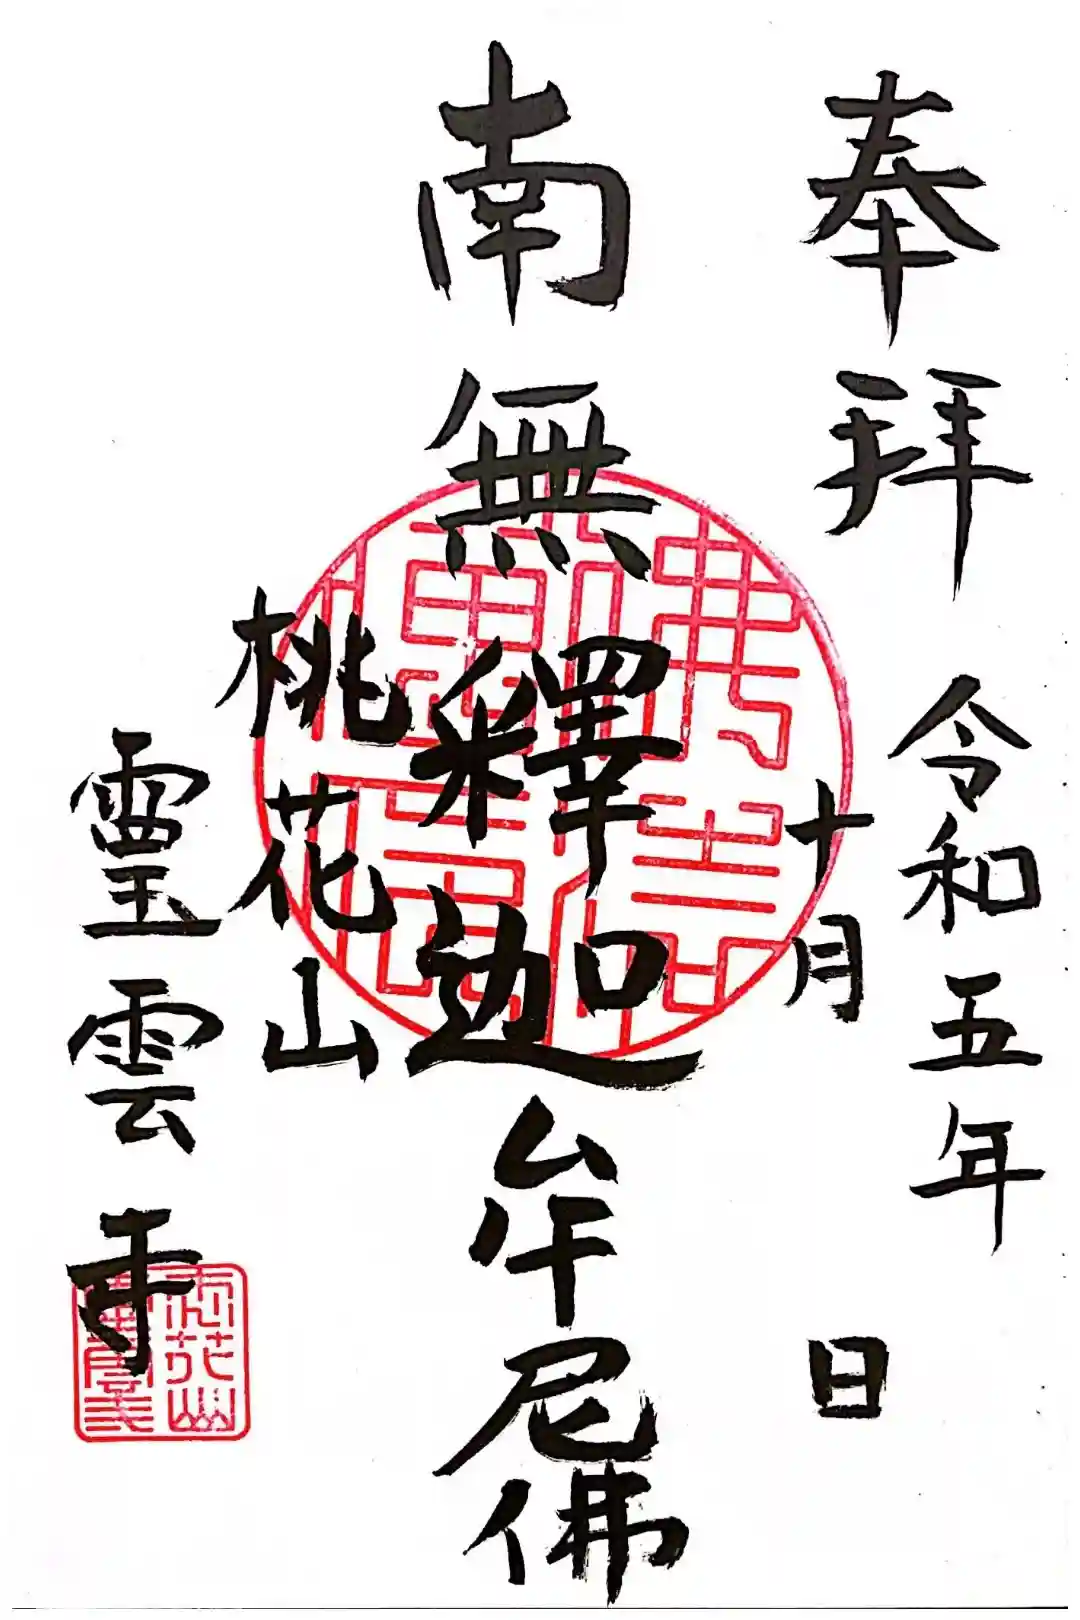 奉拝
令和五年
十月　日
南無釋迦牟尼佛
桃花山
靈雲寺